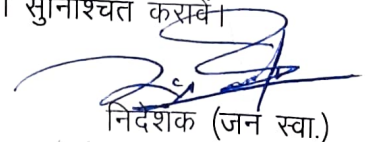 सुनिश्चित करावें।
निदेशक (जन स्वा.)